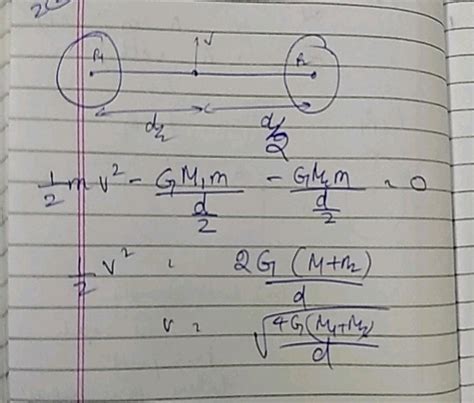 R₁ v R₂
d/2 d/2
1/2 m v² - GM₁m/(d/2) - GM₂m/(d/2) = 0
1/2 v² = 2G(M₁+M₂)/d
v = √(4G(M₁+M₂)/d)